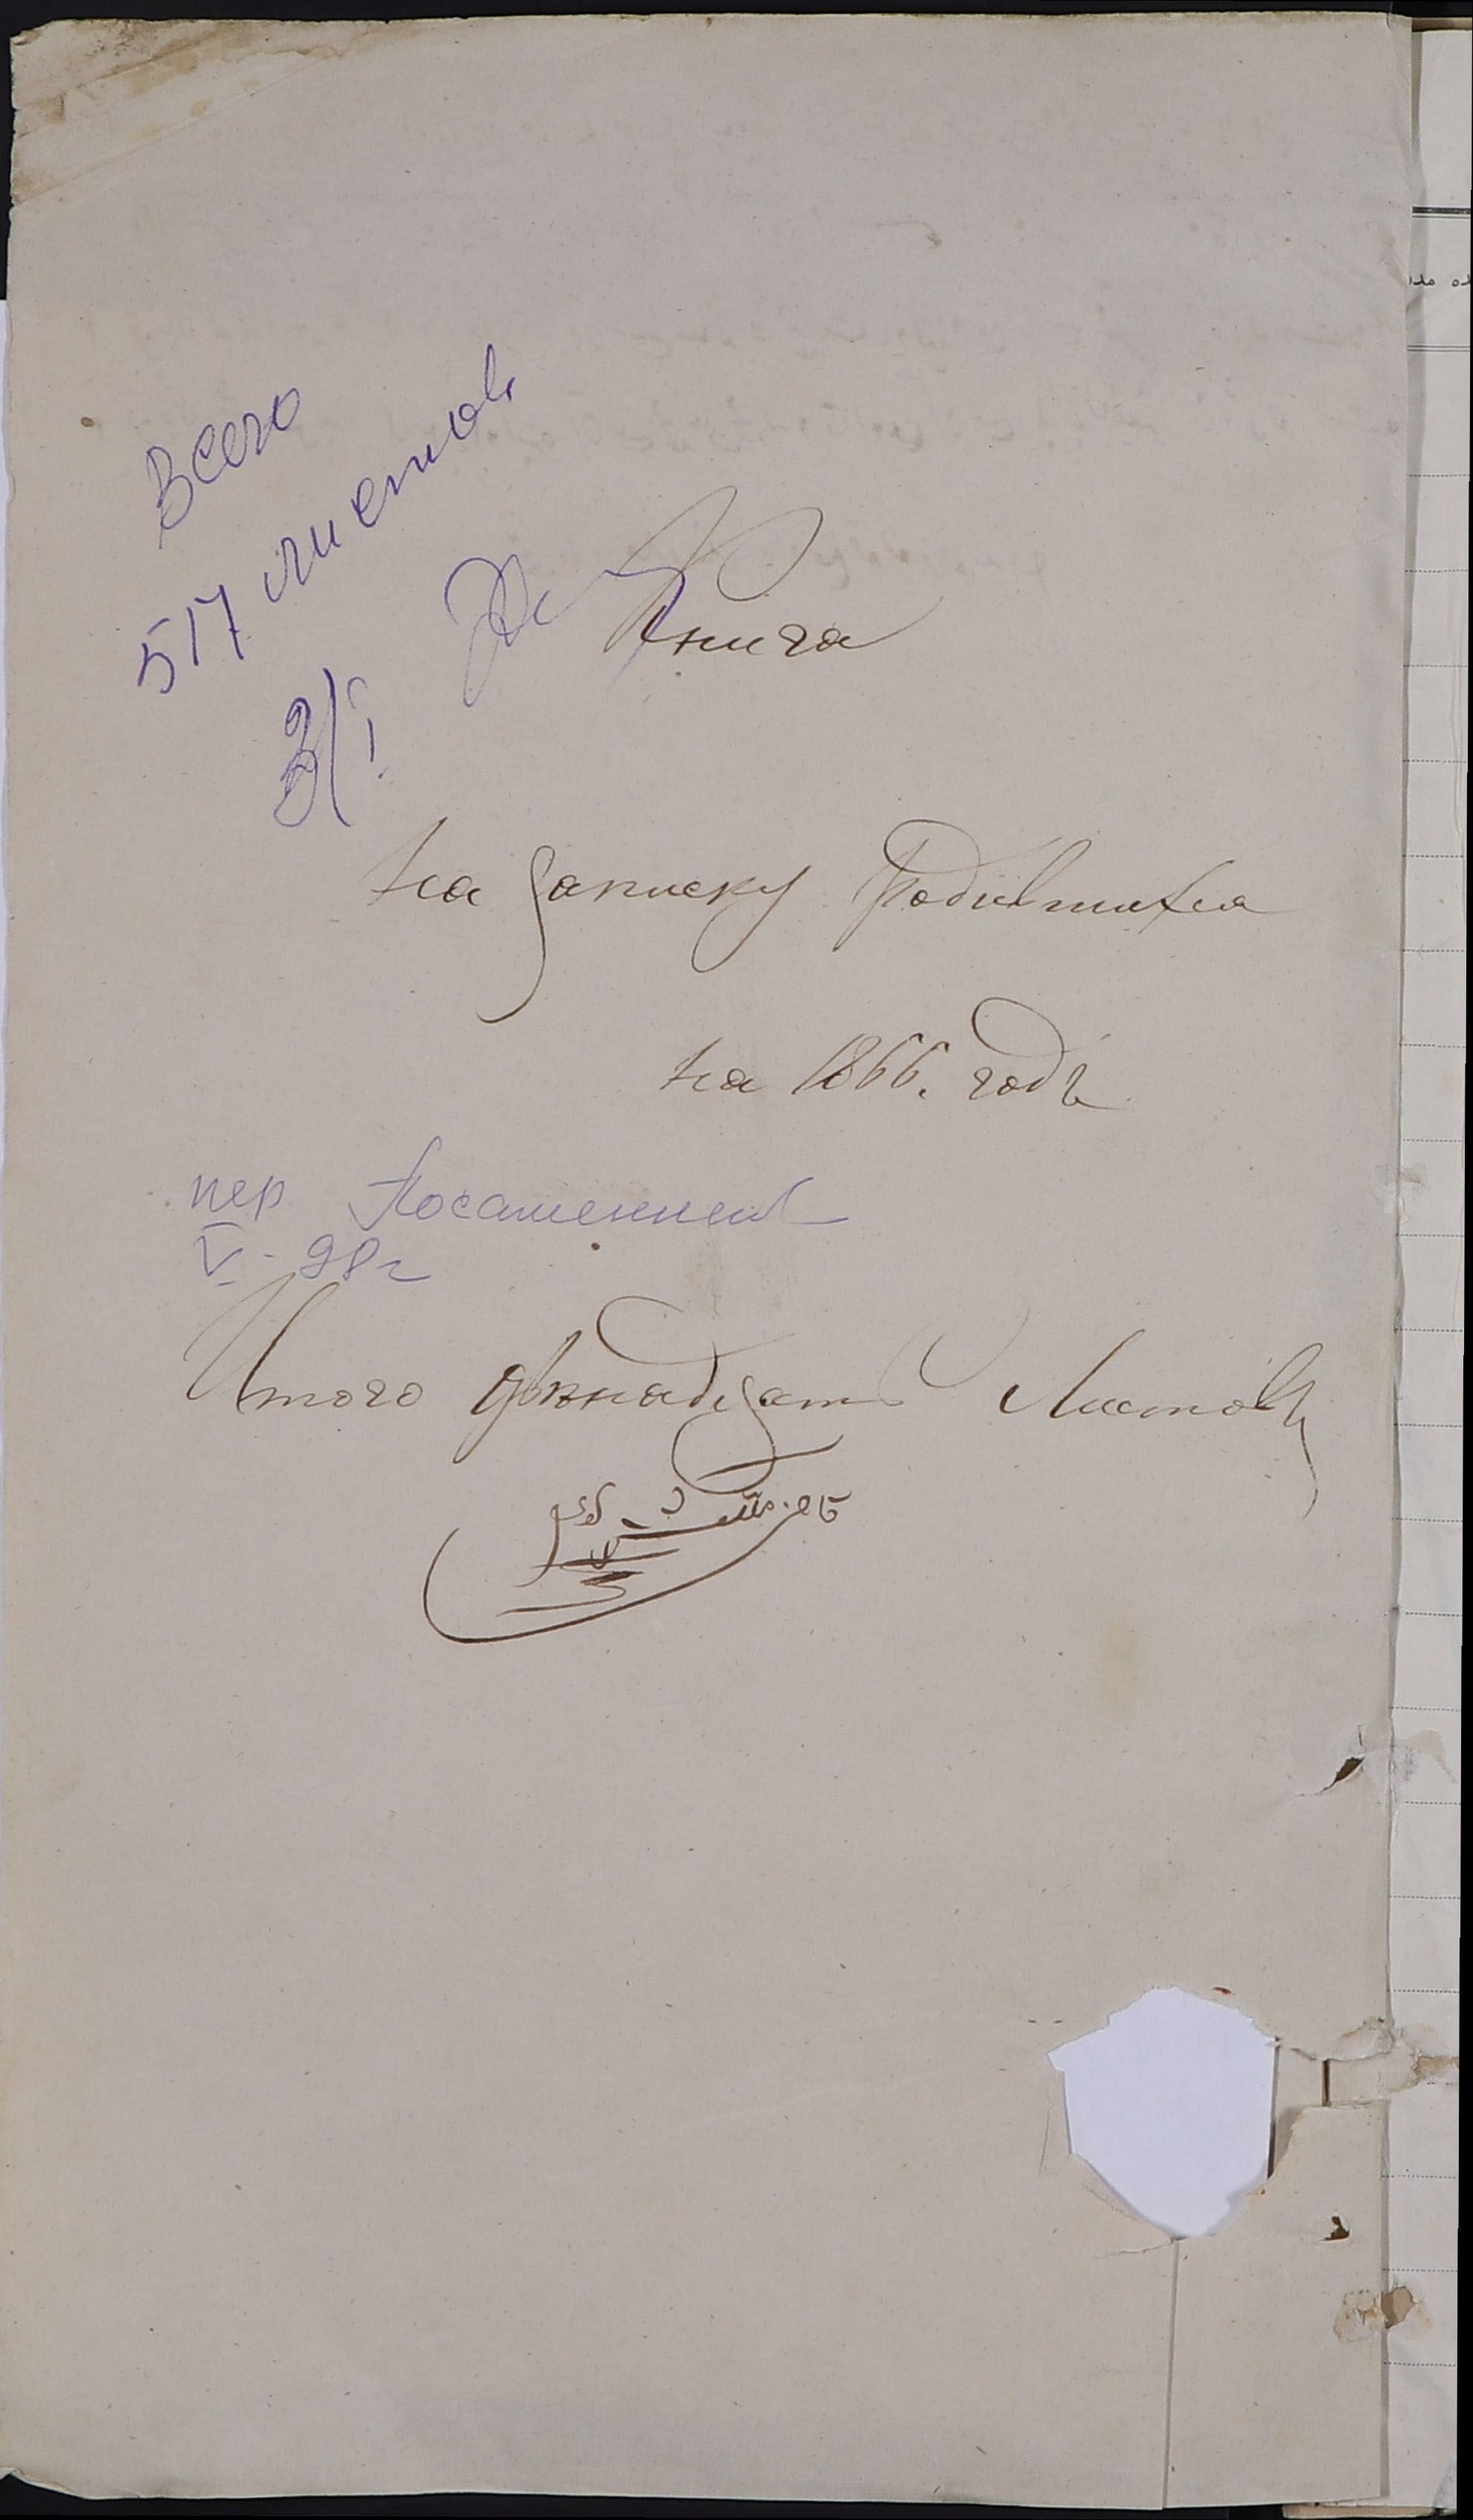 Всего
517 листов
Книга
3/I
На записку Родившихся
на 1866. годъ
пер
V - 98 г
Итого двенадцать Листовъ